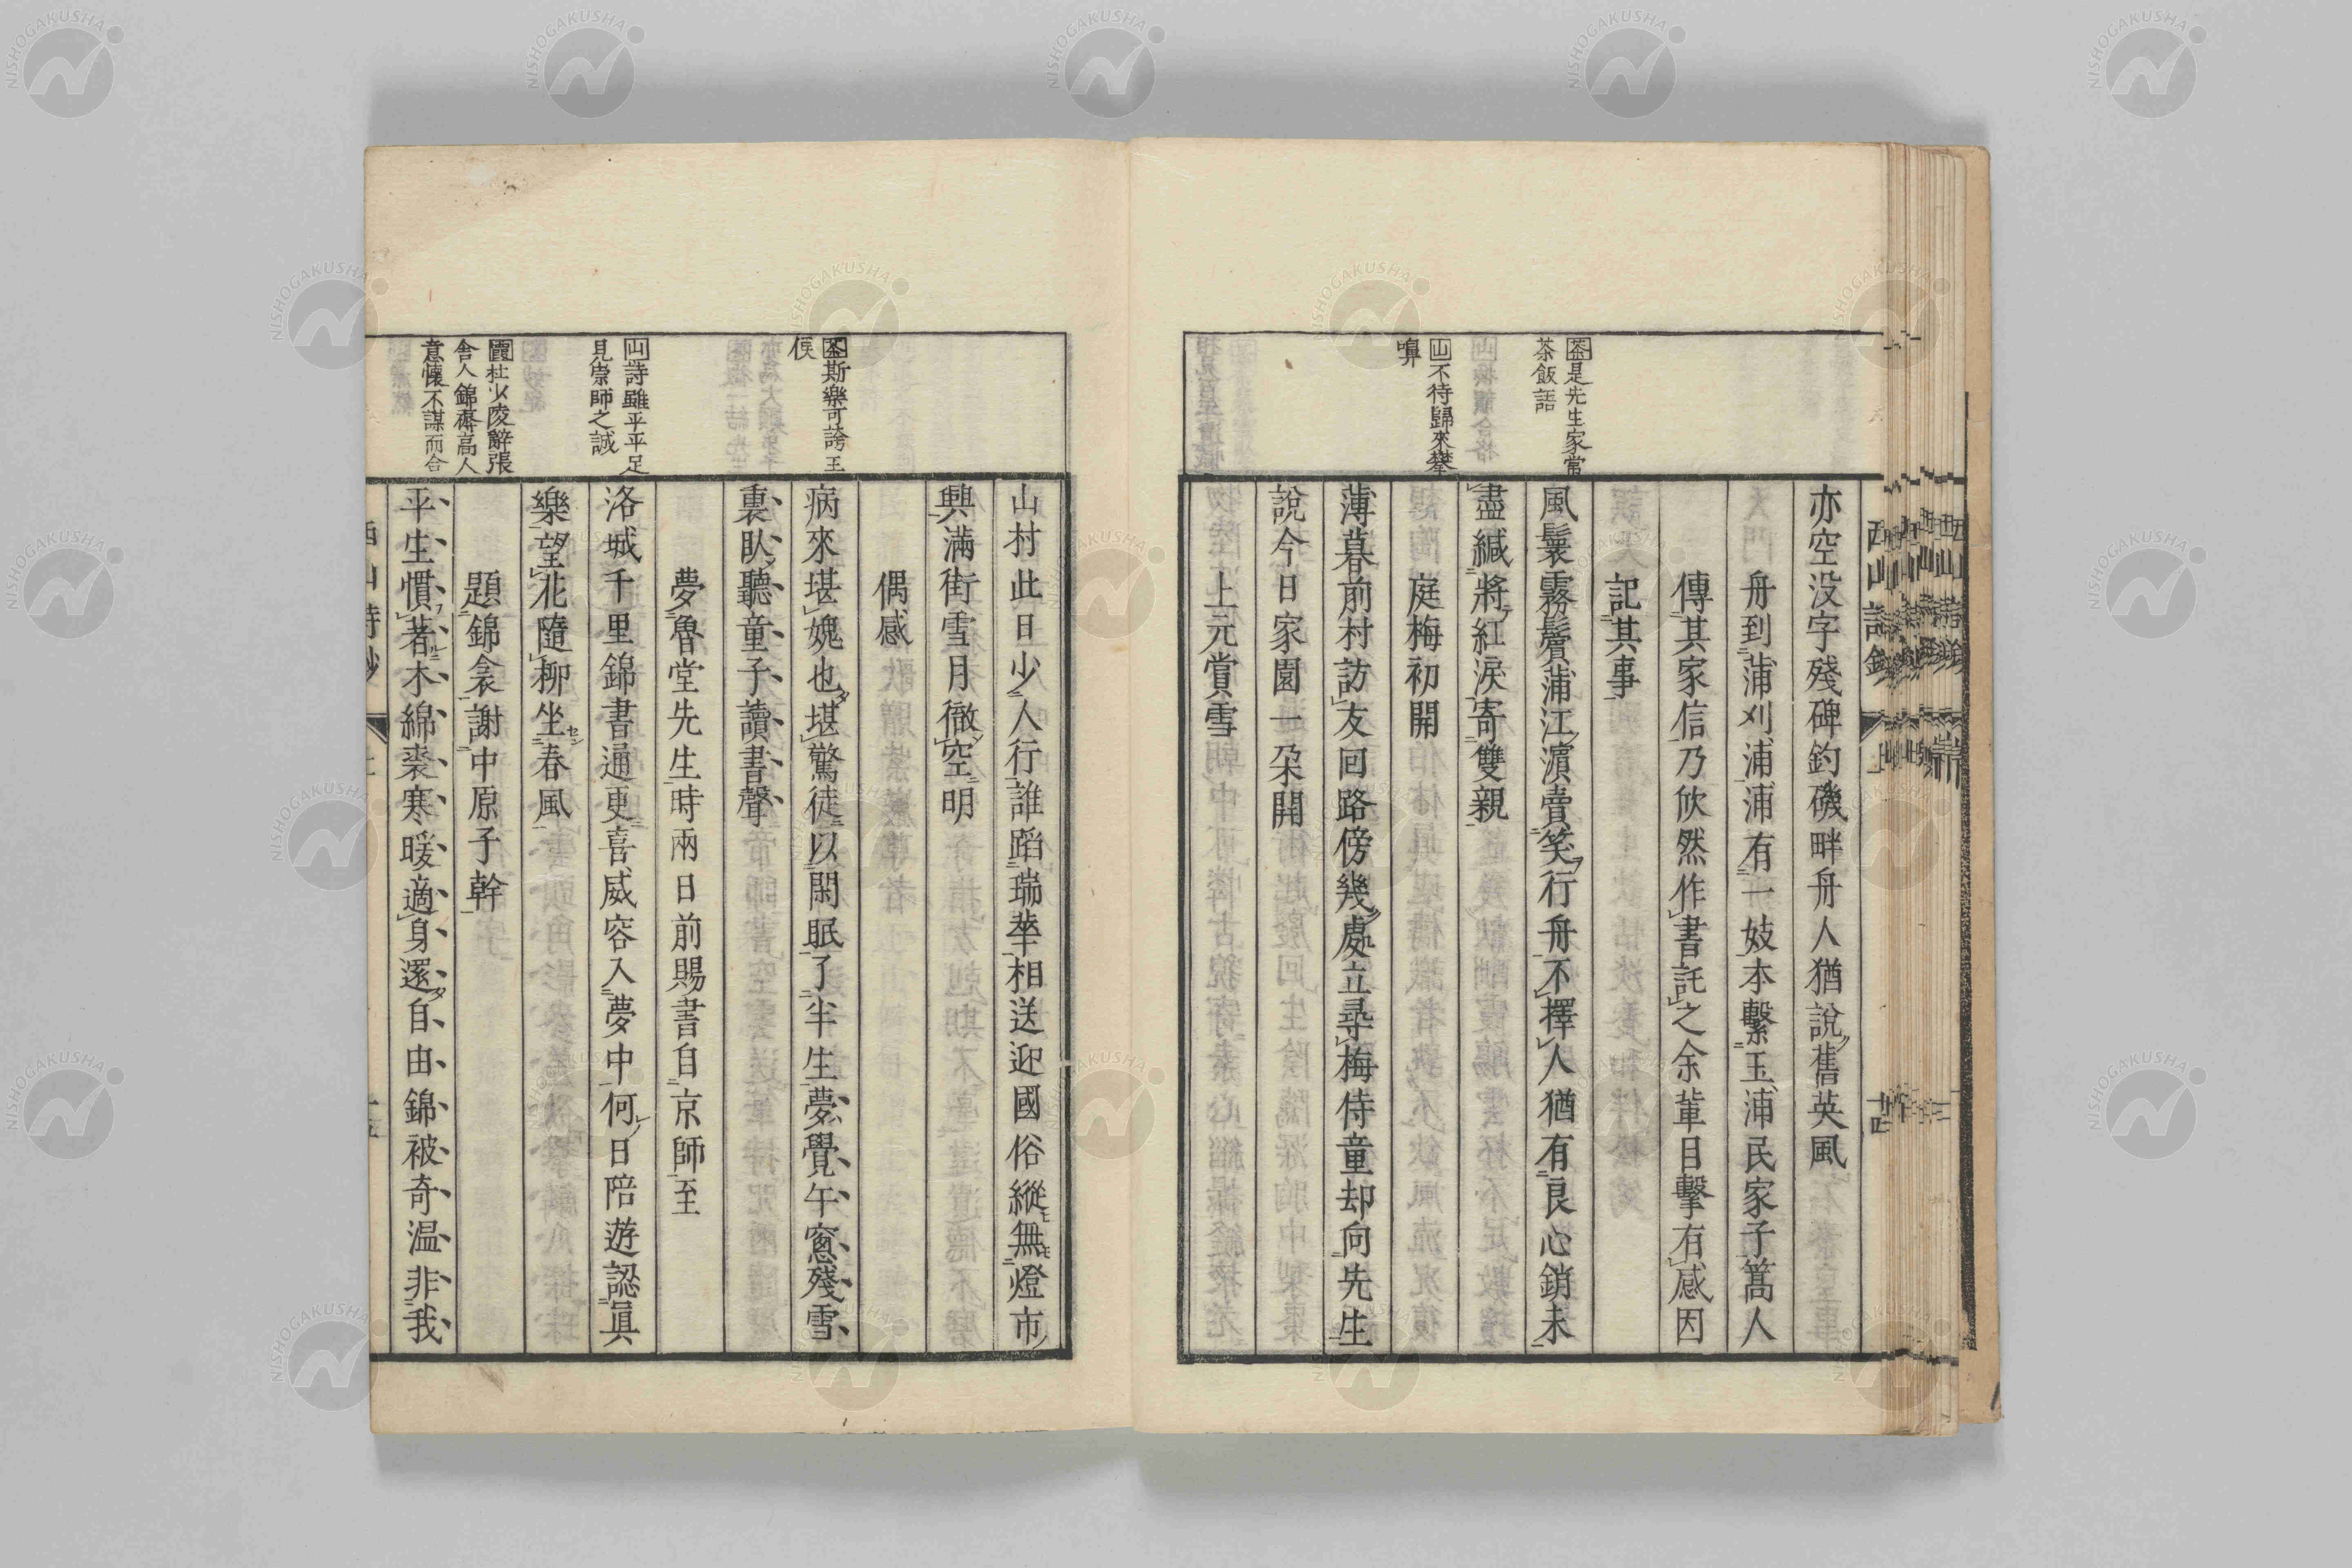 茶是先生家常
茶飯語
山不待歸來擧
嗅
亦空没字殘碑釣磯畔舟人猶說舊英風
舟到蒲刈浦浦有一妓本繫玉浦民家子篙人
傳其家信乃欣然作書託之余輩目擊有感因
記其事
風鬟霧鬢蒲江濱賣笑行舟不擇人猶有良心銷未
盡緘將紅淚寄雙親
庭梅初開
薄暮前村訪友回路傍幾處立尋梅侍童却向先生
說今日家園一朶開
上元賞雪
茶斯樂可誇王
侯
山詩雖平平足
見崇師之誠
霞杜少陵辭張
舎人錦齋高人
意懷不謀而合
山村此日少人行誰蹈瑞華相送迎國俗縱無燈市
興滿街雪月徹空明
偶感
病來堪媿也堪驚徒以閑眠了半生夢覺午窻殘雪
裏臥聽童子讀書聲
夢魯堂先生時兩日前賜書自京師至
洛城千里錦書通更喜威容入夢中何日陪遊認眞
樂望花隨柳坐春風
題錦衾謝中原子幹
平生慣著木綿裘寒暖適身還自由錦被奇温非我
西山詩鈔 上 十五
NISHOGAKUSHA